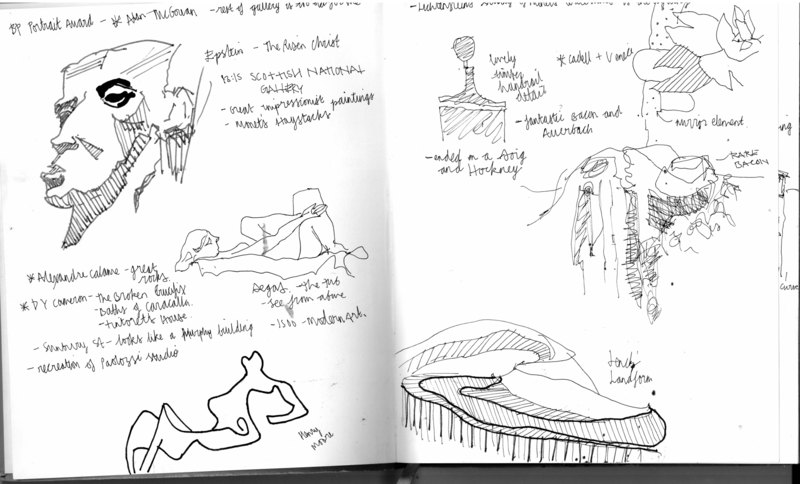 BP Portrait Award - * Alan McGowan - rest of gallery is
Epstein - The Risen Christ
SCOTTISH NATIONAL
GALLERY
- great impressionist paintings
- Monet's Haystacks
* Alexandre Calame - great
rocks.
* DY Cameron - The Broken
- Baths of Caracalla.
- Tintoret's House.
- looks like a Murphy building
- recreation of Paolozzi studio
Degas - The tub
- see from above
- 1500 - Modern Art.
Henry
Moore
- Lichtenstein
lovely
handrail
detail
* Cadell +
- fantastic Bacon and
Auerbach
mirror element
- ended on a Doig
and Hockney
RARE
BACON
Landform